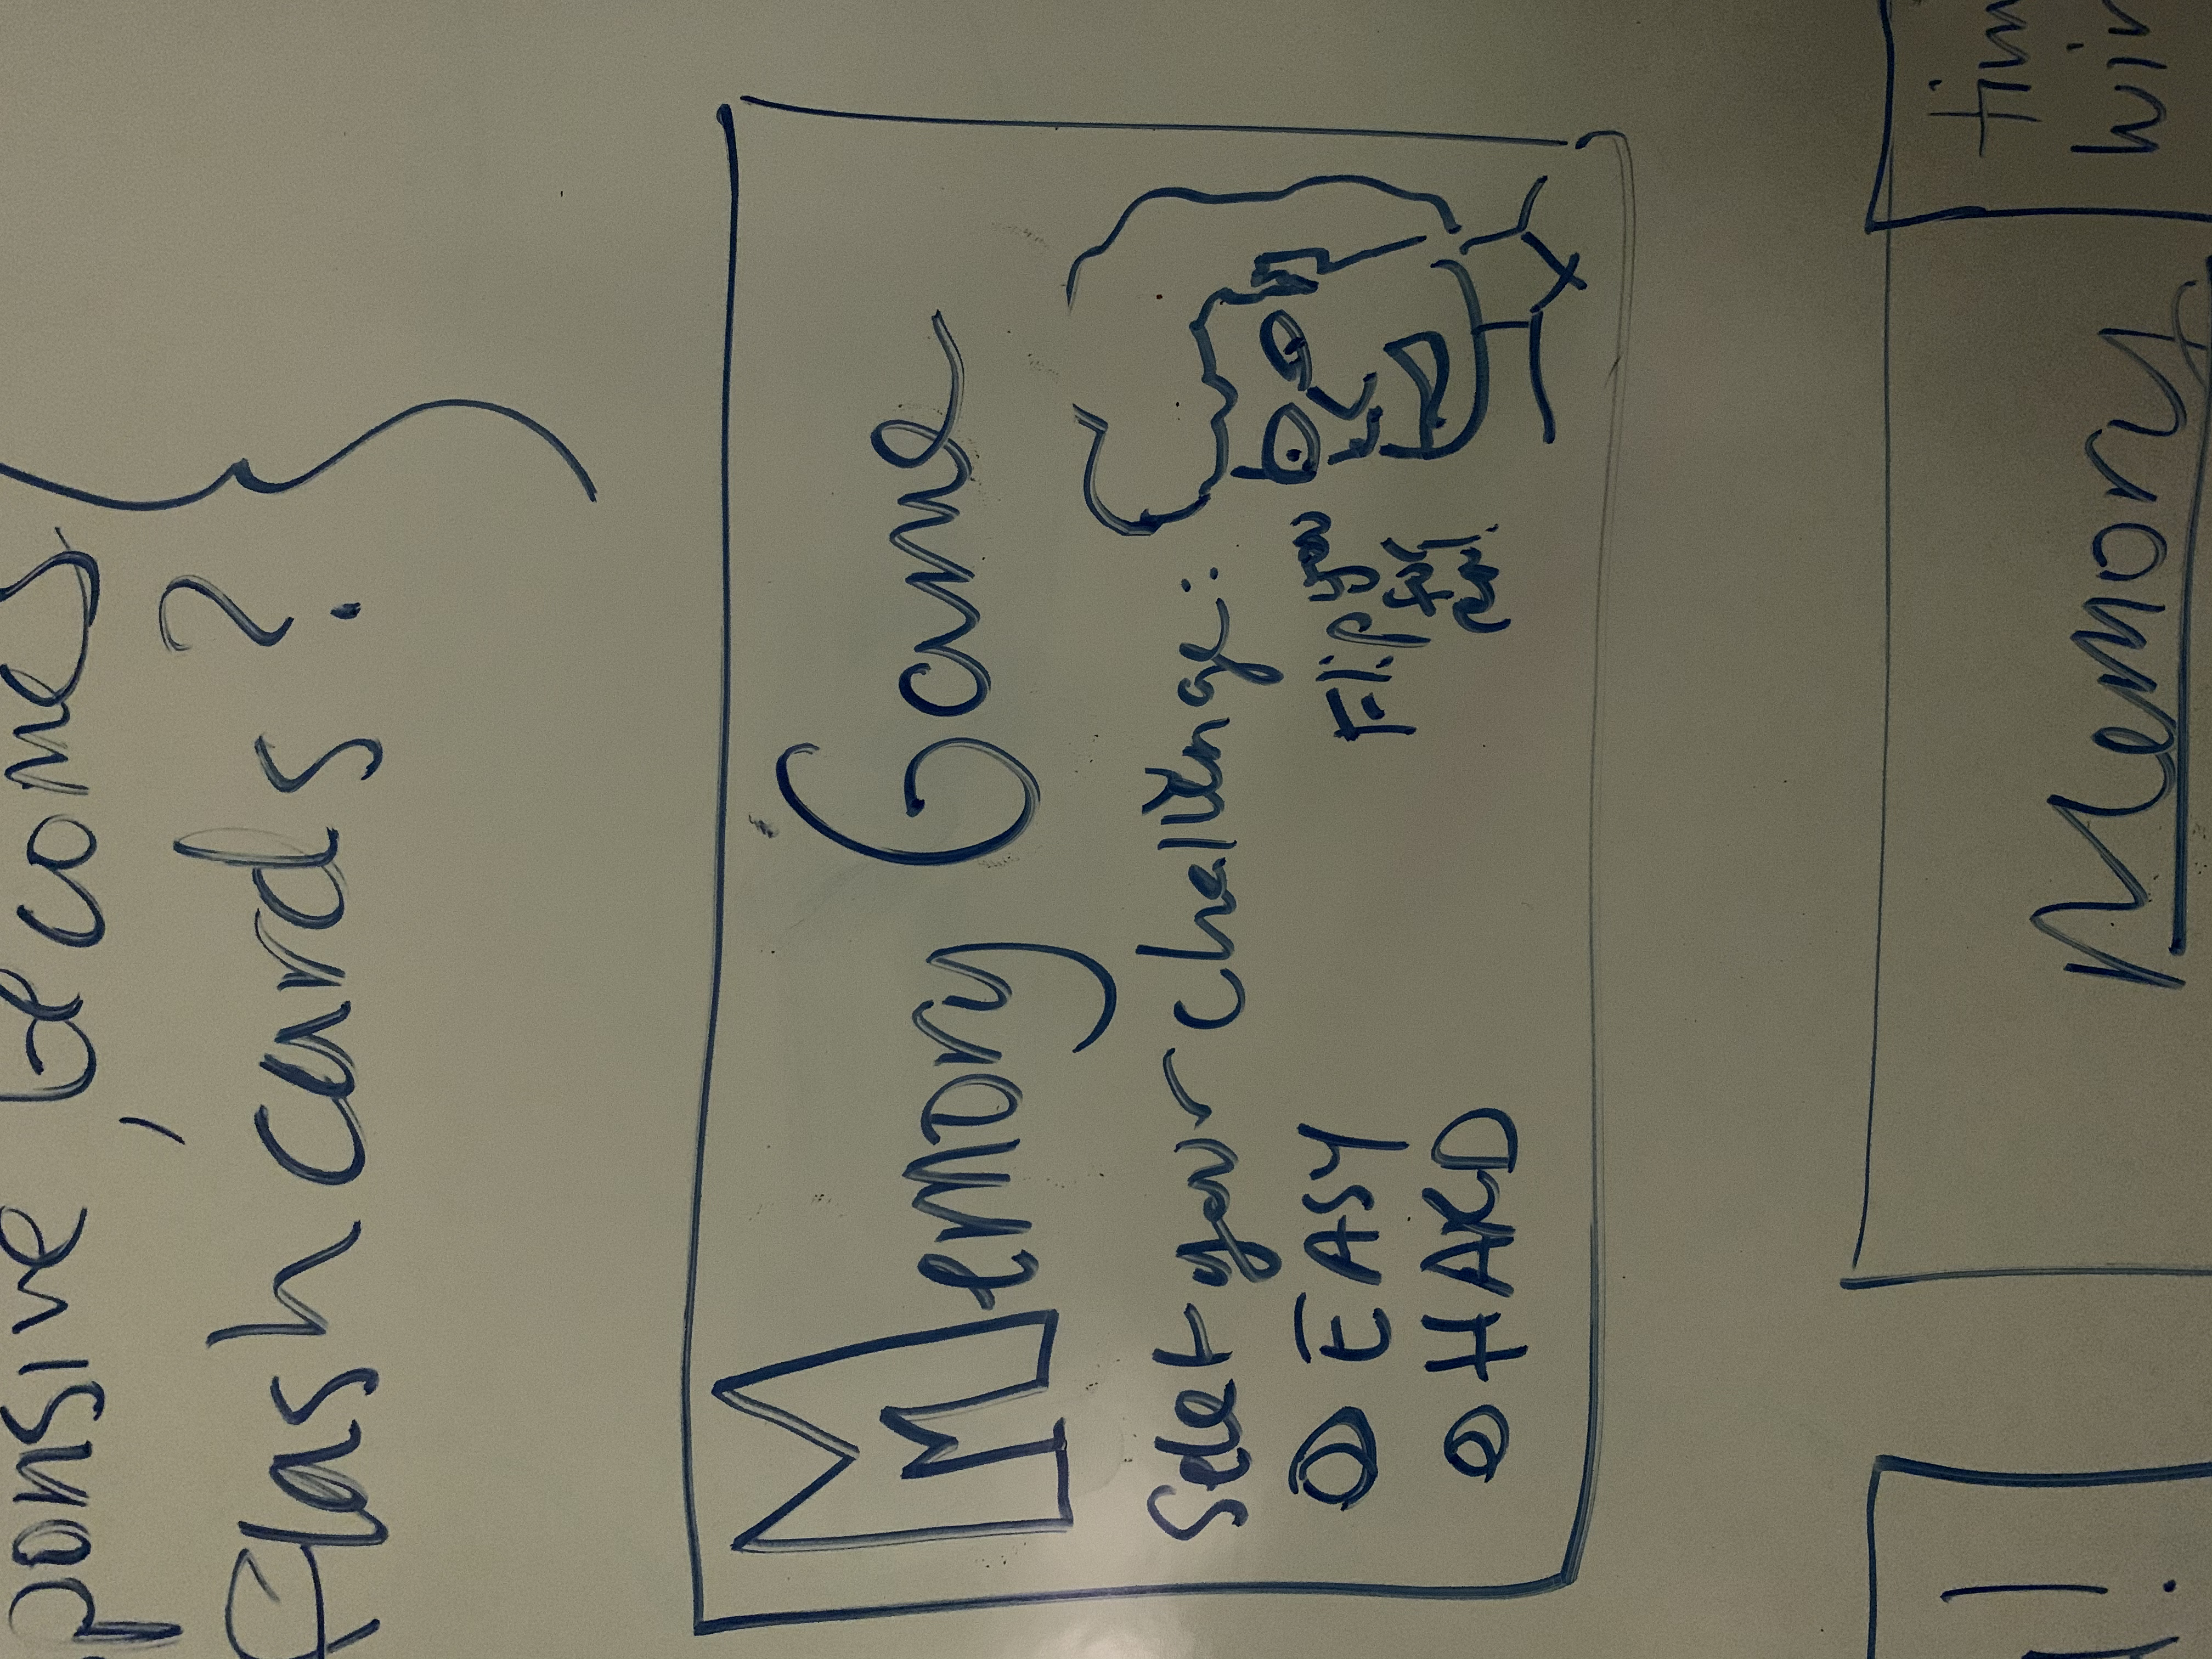 ponsive, becomes
Flashcards?
Memory Game
Select your challenge:
EASY
HARD
Flip you
for
real!
!
Memory
tim
win